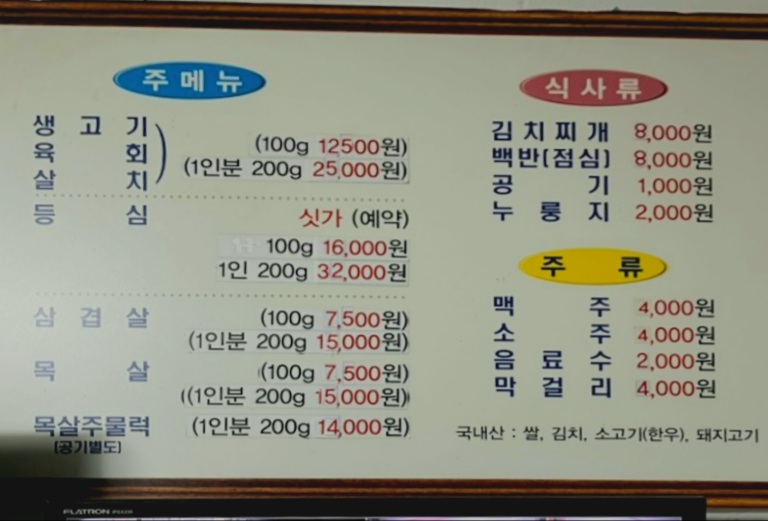 주메뉴
생고기
육회
살치
(100g 12500원)
(1인분 200g 25,000원)
등심 싯가 (예약)
100g 16,000원
1인 200g 32,000원
삼겹살 (100g 7,500원)
(1인분 200g 15,000원)
목살 (100g 7,500원)
((1인분 200g 15,000원)
목살주물럭 (1인분 200g 14,000원)
(공기별도)
식사류
김치찌개 8,000원
백반(점심) 8,000원
공기 1,000원
누룽지 2,000원
주류
맥주 4,000원
소주 4,000원
음료수 2,000원
막걸리 4,000원
국내산 : 쌀, 김치, 소고기(한우), 돼지고기
FLATRON